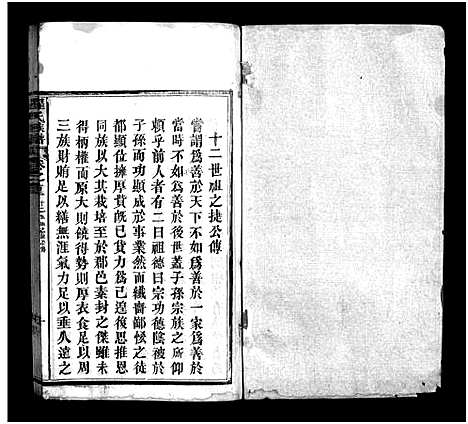 十二世祖之捷公傳
嘗謂爲善於天下不如爲善於一家爲善於
當時不若爲善於後世蓋子孫宗族之所仰
賴乎前人者有二曰祖德曰宗功德蔭被於
子孫而功顯成於事業然而纖嗇鄙悋之徒
都顯位擁厚貲旣已貸力爲己遑復思推恩
同族以大其栽培至於郡邑素封之傑雖未
得柄權而原大則饒得勢則厚衣食足以周
三族財賄足以繕無涯氣力足以垂久遠之